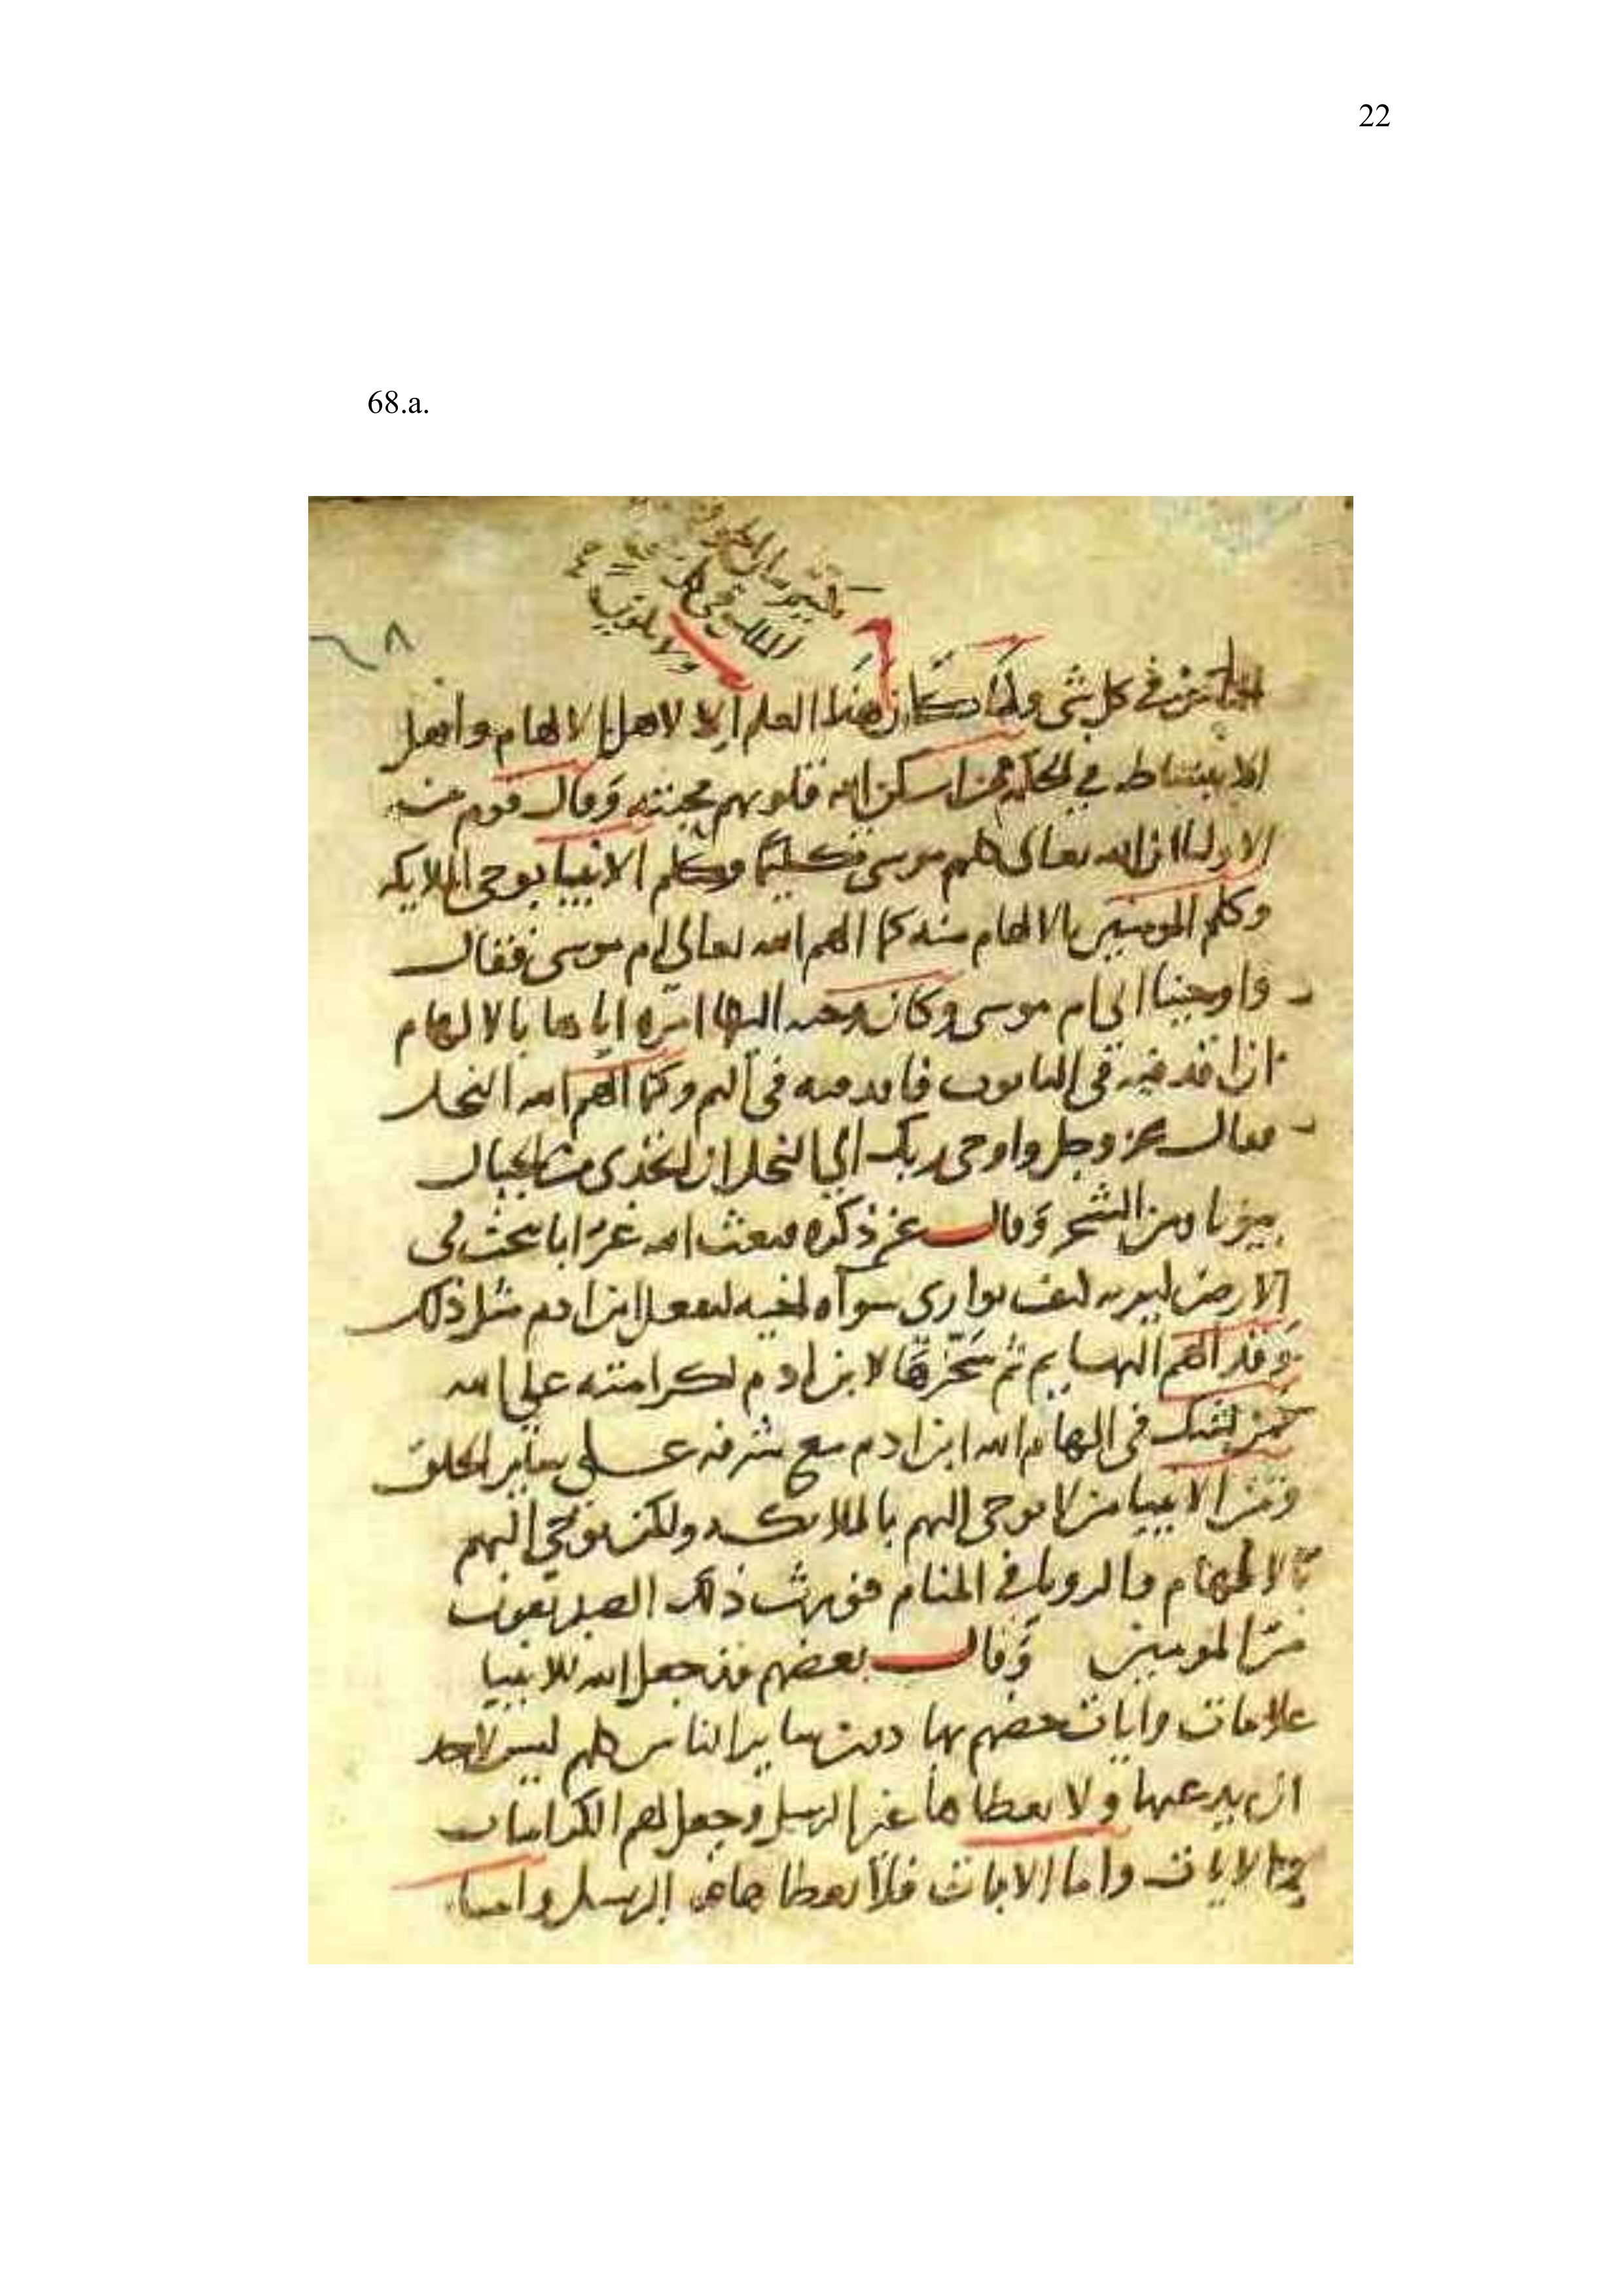 22
68.a.
٦٨
في كل شي ولما كان هذا العلم الا لاهل الالهام واهل
الاستنباط في الحكم ممن اسكن الله قلوبهم محبته وقال قوم من
الاوليا ان الله تعالى كلم موسى تكليما وكلم الانبيا بوحي الملايكه
وكلم المومنين بالالهام منه كما الهم الله تعالى ام موسى فقال
واوحينا الى ام موسى وكان وحيه اليها امره اياها بالالهام
ان اقذفيه في التابوت فاقذفيه في اليم وكما الهم الله النحل
فقال عز وجل واوحى ربك الى النحل ان اتخذي من الجبال
بيوتا ومن الشجر وقال عز ذكره فبعث الله غرابا يبحث في
الارض ليريه كيف يواري سوأه اخيه ليفعل ابن ادم مثل ذلك
وقد الهم البهايم ثم سخرها لابن ادم لكرامته على الله
فمن يشك في الهام الله ابن ادم مع شرفه على ساير الخلق
ومن الانبيا من لا يوحى اليهم بالملايكه ولكن يوحي اليهم
بالالهام والرويا في المنام فورث ذلك الصديقون
من المومنين وقال بعضهم قد جعل الله للانبيا
علامات وايات خصهم بها دون ساير الناس كلهم ليس لاحد
ان يدعيها ولا يعطاها غير الرسل وجعل لهم الكرامات
الايات واما الايات فلا يعطاها الا الرسل